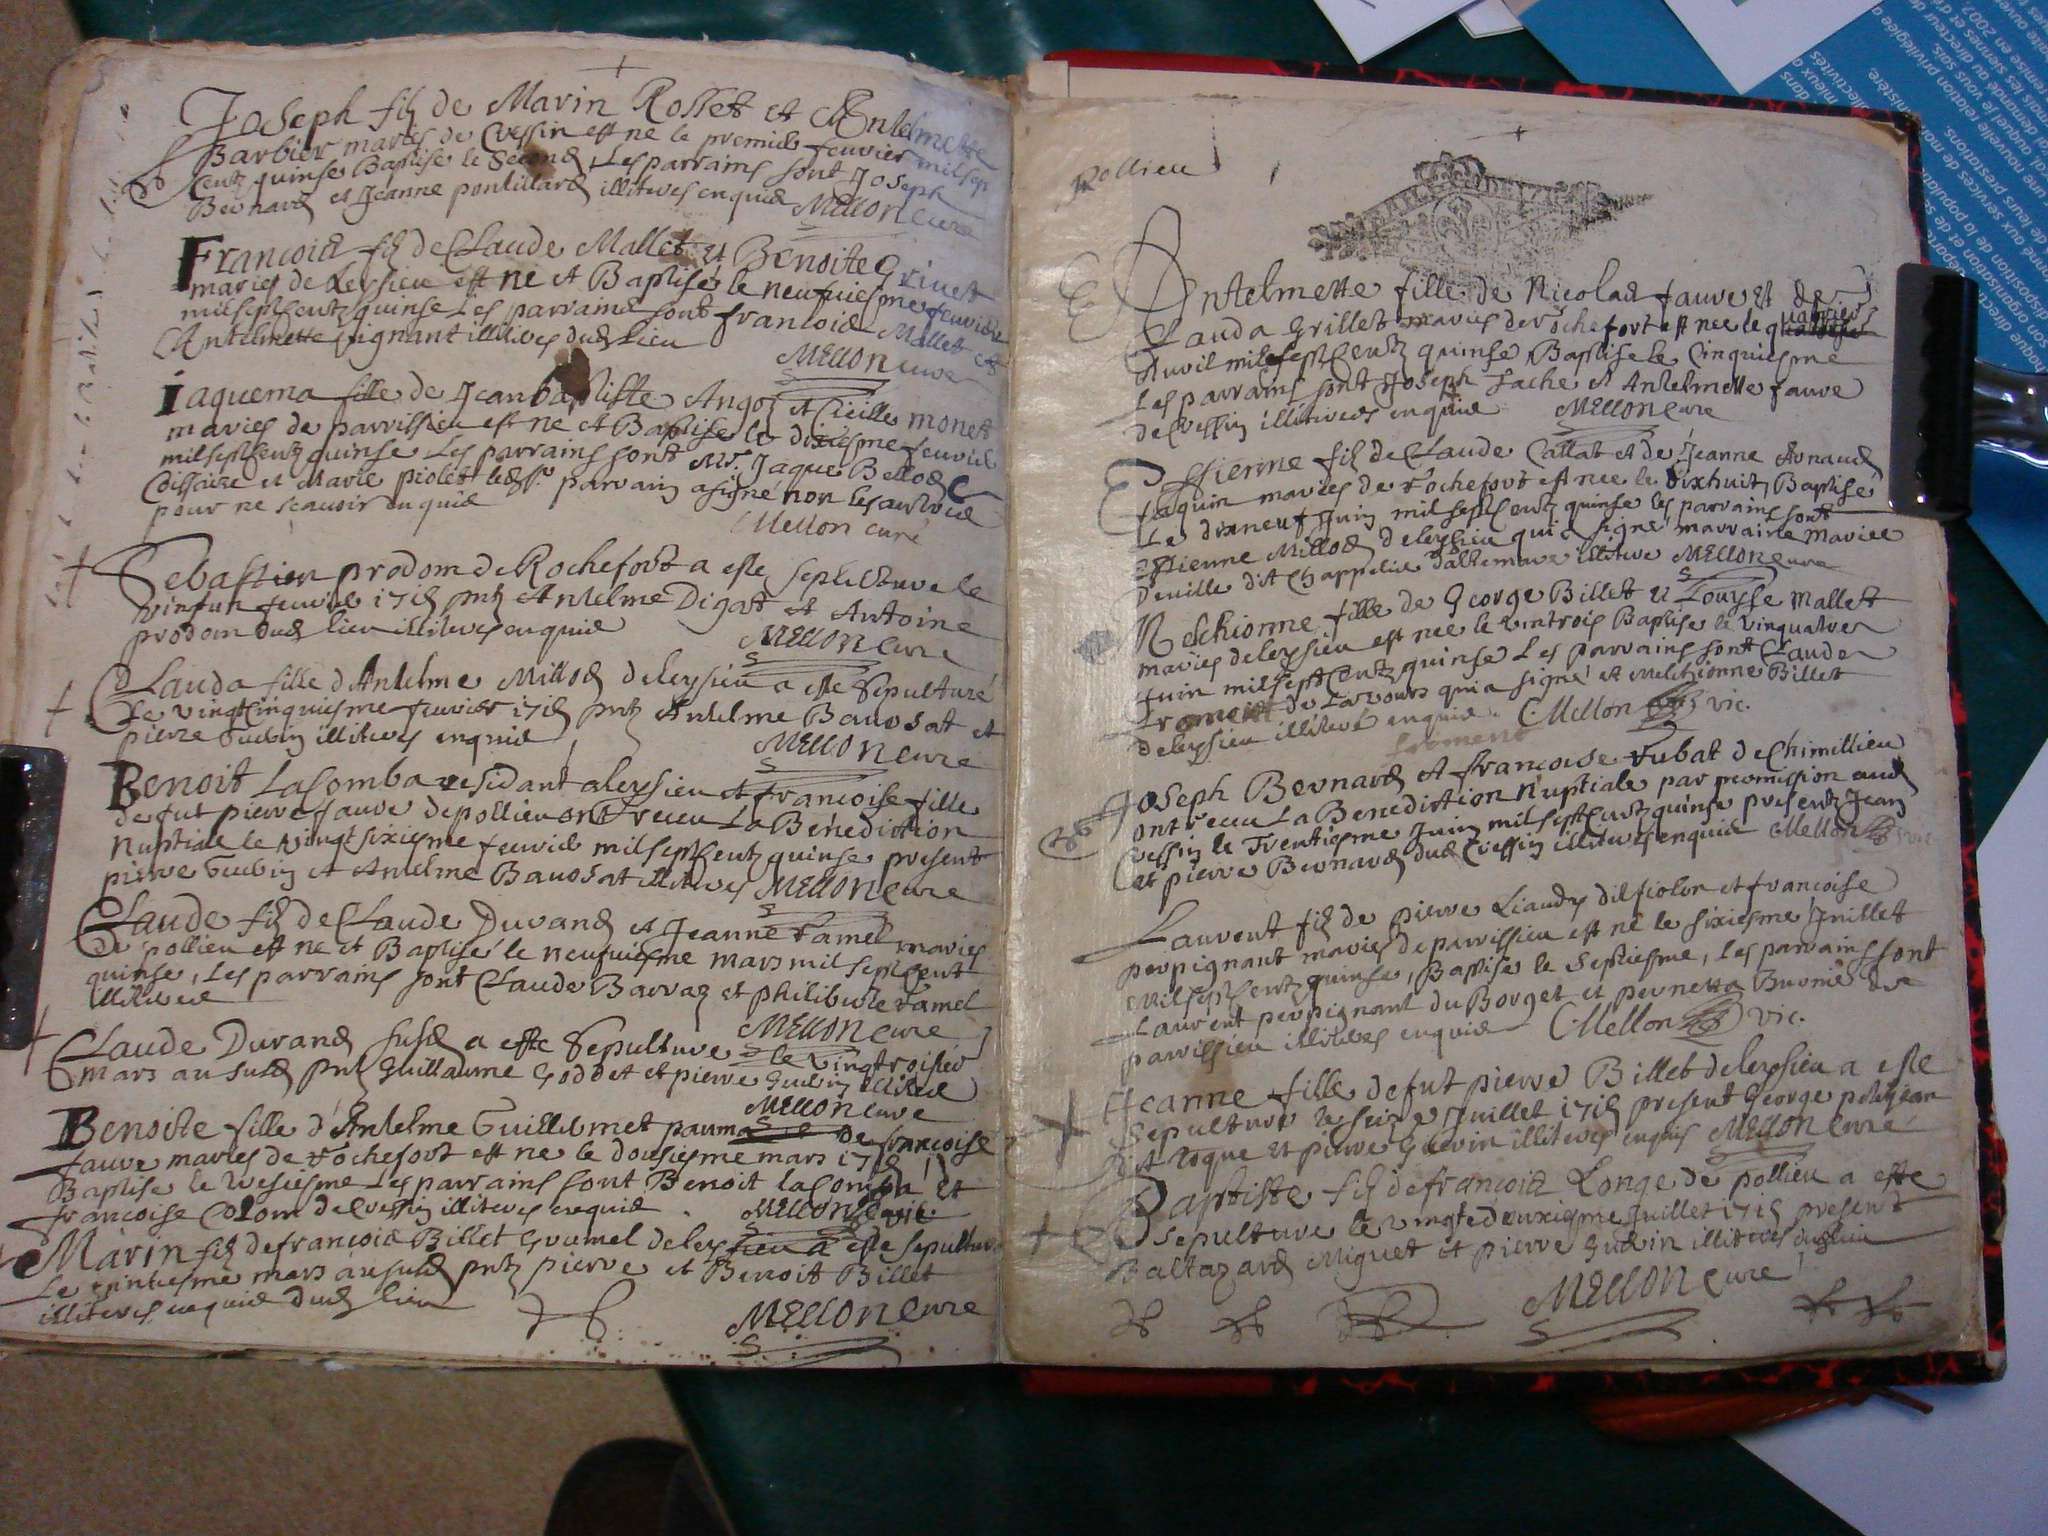 Joseph fils de Marin Rosset et Antelmette
Barbier mariés de Cressin est ne le premier feuvrier mil sep
Centz quinse Baptise le Second, Les parrains sont Joseph
Bernard et Jeanne pontillard illiteres enquis MELLON cure
Francois fils de Claude Mallet et Benoite Grinet
maries de Leysieu est ne et Baptisé le neufuiesme feuvrier
mil sept Centz quinse Les parrains sont francois Mallet et
Antelmette pignant illiteres dud lieu
MELLON cure
Jaquema fille de Jean baptiste Angoz et Cicille monet
maries de parvissieu est ne et Baptise le dixiesme feuvrier
mil sept Centz quinse Les parrains sont Mr. Jaque Bellod
et Marie piolet led Sr. parrain a signé non les autres
pour ne scauoir enquis
Mellon curé
Sebastien prodom de Rochefort a este sepulture le
vingt un feuvrier 1715 pntz Antelme Digat et Antoine
prodom dud lieu illiteres enquis
MELLON cure
Clauda fille d'Antelme Millod de leysieu a este Sepulturé
Le vingt Cinquiesme feuvrier 1715 pntz Antelme Bavosat et
pierre Guerin illiteres enquis
MELLON cure
Benoit Lacomba residant a leysieu et francoise fille
de fut pierre faure de pollieu ont receu La Benediction
Nuptiale le vingt sixiesme feuvrier mil sept Centz quinse present
pierre Guerin et Antelme Bavosat illiteres MELLON cure
Claude fils de Claude Durand et Jeanne tamel maries
de pollieu est ne et Baptisé le neufuiesme mars mil sept Cent
quinse, Les parrains sont Claude Barraz et philiberte tamel
illiteres
MELLON cure
Claude Durand susd a este Sepulture le vingtroisier
mars au susd pntz Guillaume Goddet et pierre Guerin
MELLON cure
Benoite fille d'Antelme Guillermet de francoise
faure maries de rochefort est ne le dousiesme mars 1715
Baptise le tresiesme Les parrains sont Benoit lacomba et
francoise Colom de Cressin illiteres enquis
MELLON
Marin fils de francois Billet Grumel de leysieu a este sepulture
Le trentiesme mars au susd pntz pierre et Benoit Billet
illiteres enquis dud lieu
MELLON Cure
pollieu
Antelmette fille de Nicolas faure et de
Clauda Grillet maries de rochefort est nee le
Auril mil sept Centz quinse Baptise le Cinquiesme
Les parrains sont Joseph Lache et Antelmette faure
de Cressin illiteres enquis MELLON cure
Estienne fils de Claude Callat et de Jeanne Arnaud
Jaquin maries de rochefort est nee le dixhuit, Baptise
Le dixneuf Juin mil sept Centz quinse les parrains sont
Estienne Millod de leysieu qui a signé marraine Mariee
Deuille dit Chappelie illitere MELLON cure
Melchionne fille de George Billet et Louyse Mallet
maries de leysieu est nee le vintrois Baptise le vinquatre
Juin mil sept Centz quinse Les parrains sont Claude
froment de Lavours qui a signé et Melchionne Billet
de leysieu illitere enquis. Mellon vic.
froment
Joseph Bernard et francoise rubat de Chimillieu
ont receu La Benediction Nuptiale par permission aud
Cressin le Trentiesme Juin mil sept Centz quinse presentz Jean
et pierre Bernard dud Cressin illiteres enquis Mellon vic
Laurent fils de pierre Liaudy dit fiolon et francoise
perpignant maries de parvissieu est né le sixiesme Juillet
mil sept Centz quinse, Baptise le Septiesme, Les parrains sont
Laurent perpignant du Borget et pernetta Burnie de
parvissieu illiteres enquis Mellon vic.
Jeanne fille de fut pierre Billet de leysieu a este
sepulture le seize Juillet 1715 present George petitjean
dit roque et pierre Guerin illiteres enquis MELLON Curé
Baptiste fils de francois Longe de pollieu a este
sepulture le vingtedeuxiesme Juillet 1715 present
Baltazard Miguet et pierre Guerin illiteres dud lieu
MELLON cure